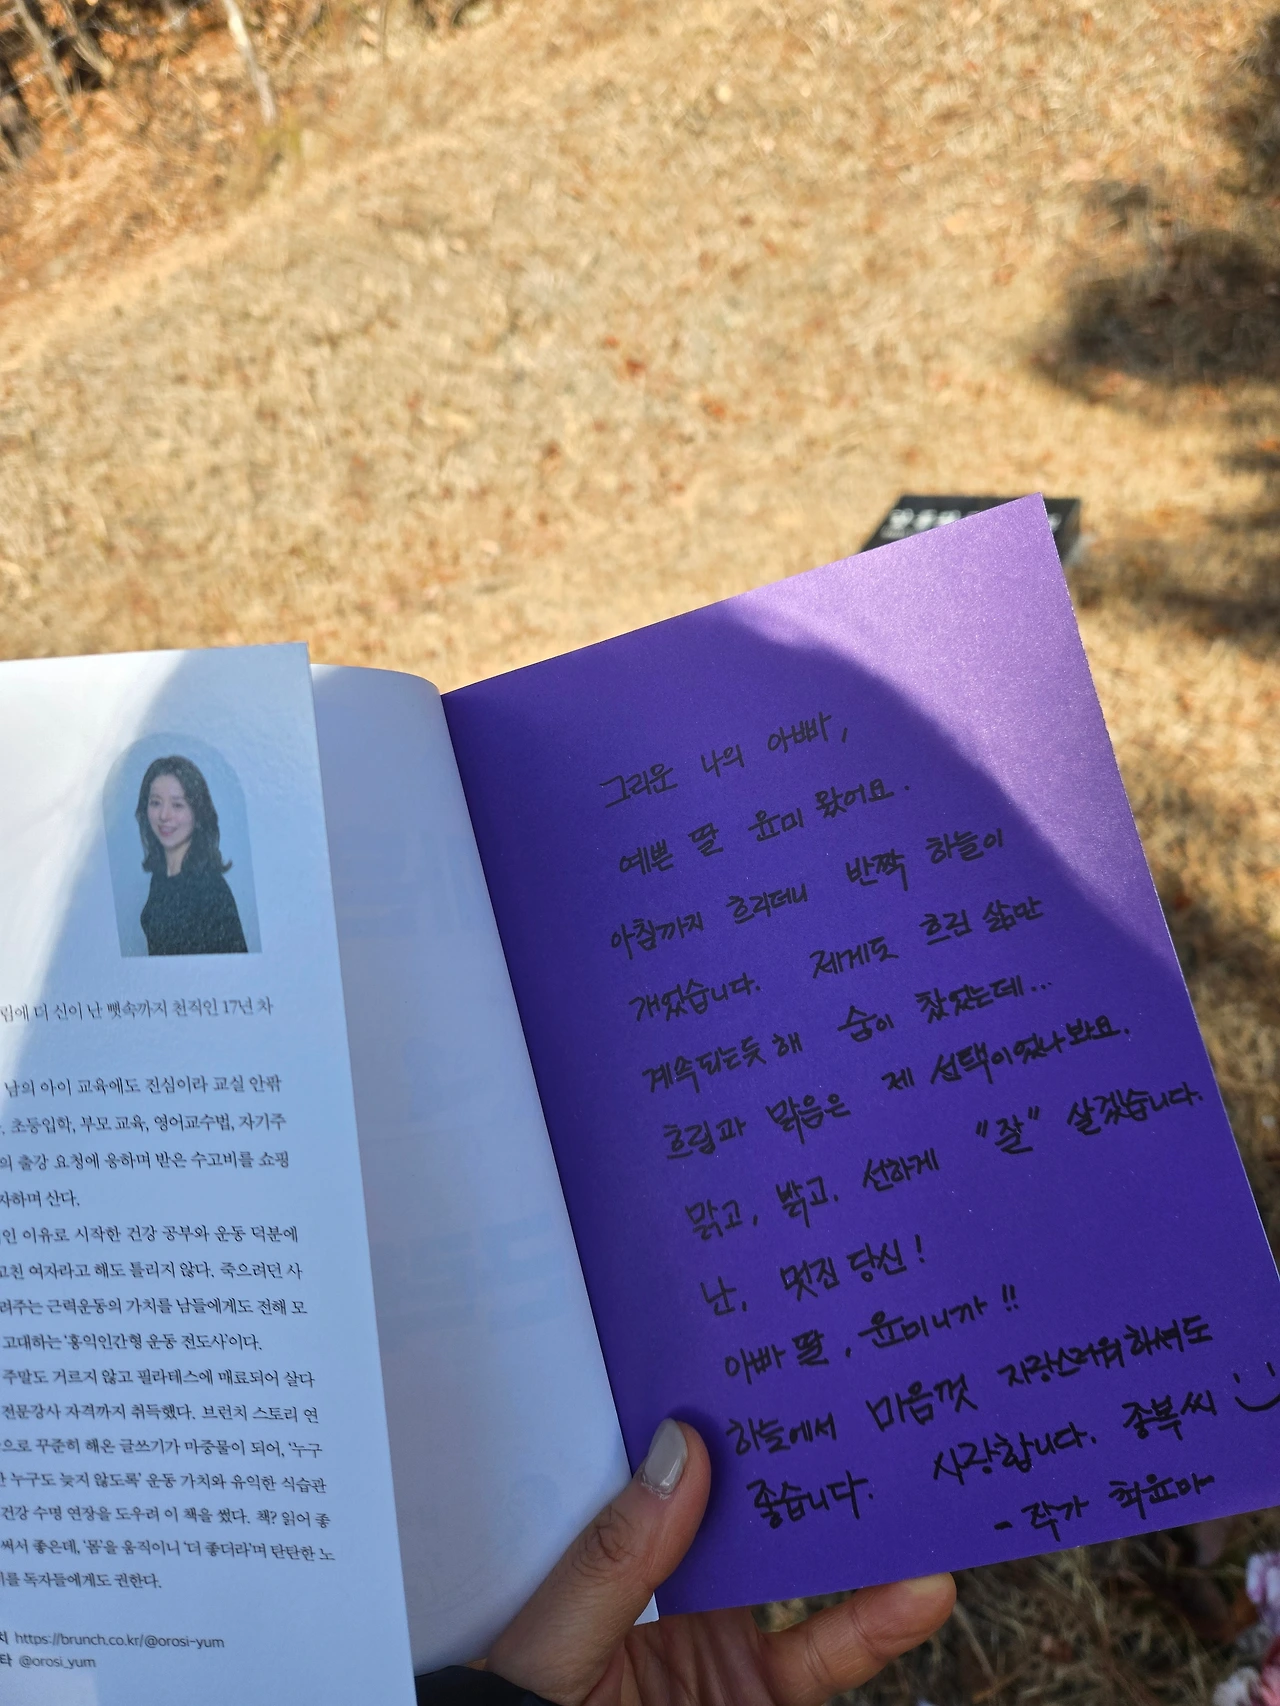 림에 더 신이 난 뼛속까지 천직인 17년 차
남의 아이 교육에도 진심이라 교실 안팎
초등입학, 부모 교육, 영어교수법, 자기주
의 출강 요청에 응하며 받은 수고비를 쇼핑
자하며 산다.
인 이유로 시작한 건강 공부와 운동 덕분에
고친 여자라고 해도 틀리지 않다. 죽으려던 사
려주는 근력운동의 가치를 남들에게도 전해 모
고대하는 '홍익인간형 운동 전도사'이다.
주말도 거르지 않고 필라테스에 매료되어 살다
전문강사 자격까지 취득했다. 브런치 스토리 연
으로 꾸준히 해온 글쓰기가 마중물이 되어, '누구
누구도 늦지 않도록' 운동 가치와 유익한 식습관
건강 수명 연장을 도우려 이 책을 썼다. 책? 읽어 좋
써서 좋은데, '몸'을 움직이니 '더 좋더라'며 탄탄한 노
를 독자들에게도 권한다.
치 https://brunch.co.kr/@orosi-yum
타 @orosi_yum
그리운 나의 아빠,
예쁜 딸 윤미 왔어요.
아침까지 흐리더니 반짝 하늘이
개었습니다. 제게도 흐린 삶만
계속되는듯 해 숨이 찼었는데...
흐림과 맑음은 제 선택이었나봐요.
맑고, 밝고, 선하게 "잘" 살겠습니다.
난, 멋진 당신!
아빠 딸, 윤미니까!!
하늘에서 마음껏 자랑스러워하셔도
좋습니다. 사랑합니다. 종복씨 :)
- 작가 최윤미-